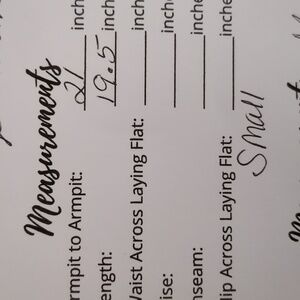 Measurements
rmpit to Armpit: 21 inch
ength: 19.5 inche
Waist Across Laying Flat: inche
ise: inche
nseam: inche
Hip Across Laying Flat: inche
Small